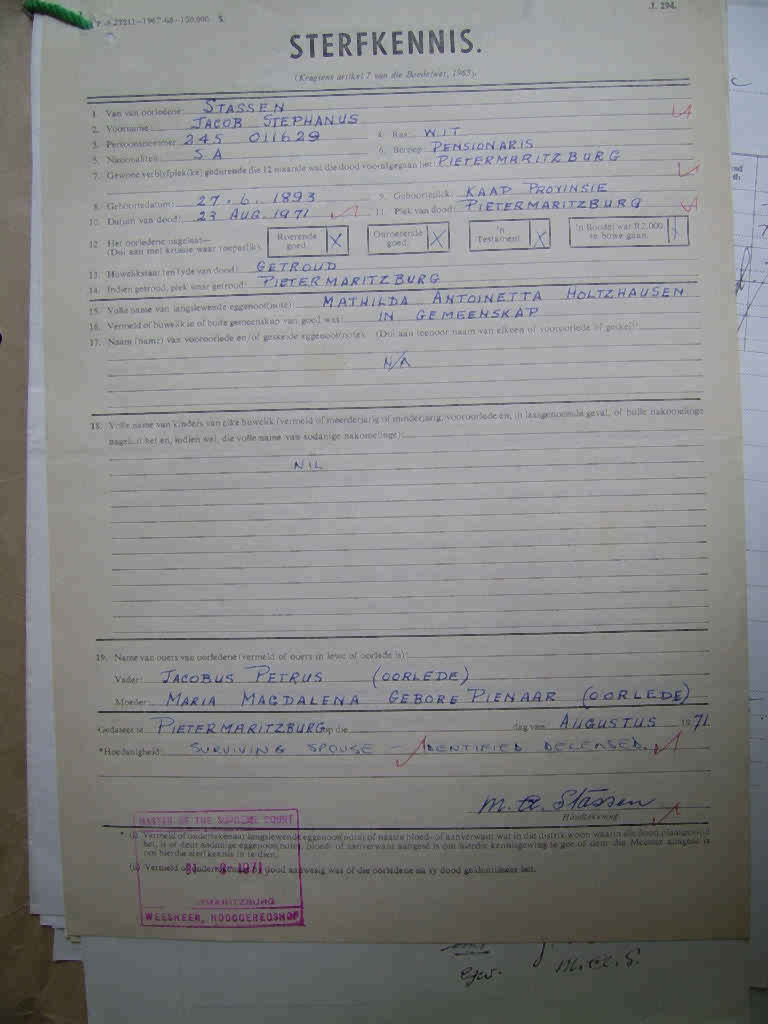 J. 294.
P.-S.23211—1967-68—150,000. S.
STERFKENNIS.
(Kragtens artikel 7 van die Boedelwet, 1965).
1. Van van oorledene: STASSEN
2. Voorname: JACOB STEPHANUS
3. Persoonsnommer: 245 011629 4. Ras: WIT
5. Nasionaliteit: S A 6. Beroep: PENSIONARIS
7. Gewone verblyfplek(ke) gedurende die 12 maande wat die dood voorafgegaan het: PIETERMARITZBURG
8. Geboortedatum: 27.6.1893 9. Geboorteplek: KAAP PROVINSIE
10. Datum van dood: 23 AUG. 1971 11. Plek van dood: PIETERMARITZBURG
12. Het oorledene nagelaat— Roerende goed. X Onroerende goed. X 'n Testament. X 'n Boedel war R2,000 te bowe gaan. X
(Dui aan met kruisie waar toepaslik).
13. Huwelikstaat ten tyde van dood: GETROUD
14. Indien getroud, plek waar getroud: PIETERMARITZBURG
15. Volle name van langslewende eggenoot(note): MATHILDA ANTOINETTA HOLTZHAUSEN
16. Vermeld of huwelik in of buite gemeenskap van goed was: IN GEMEENSKAP
17. Naam (name) van vooroorlede en/of geskeide eggenoot(note). (Dui aan teenoor naam van elkeen of vooroorlede of geskei):
N/A
18. Volle name van kinders van elke huwelik (vermeld of meerderjarig of minderjarig, vooroorlede en, in laasgenoemde geval, of hulle nakomelinge
nagelaat het en, indien wel, die volle name van sodanige nakomelinge):
NIL
19. Name van ouers van oorledene (vermeld of ouers in lewe of oorlede is):
Vader: JACOBUS PETRUS (OORLEDE)
Moeder: MARIA MAGDALENA GEBORE PIENAAR (OORLEDE)
Gedateer te PIETERMARITZBURG op die dag van AUGUSTUS 1971
*Hoedanigheid: SURVIVING SPOUSE – IDENTIFIED DECEASED.
M. A. Stassen
Handtekening
MASTER OF THE SUPREME COURT
* (i) Vermeld of ondertekenaar langslewende eggenoot(note) of naaste bloed- of aanverwant wat in die distrik woon waarin die dood plaasgevind
het, is of deur sodanige eggenoot(note), bloed- of aanverwant aangesê is om hierdie kennisgewing te gee of deur die Meester aangesê is
om hierdie sterfkennis in te dien.
(ii) Vermeld of ondertekenaar by dood aanwesig was of die oorledene na sy dood geïdentifiseer het.
8 1971
MARITZBURG
WEESHEER, HOOGGEREGSHOF
M. A. S.